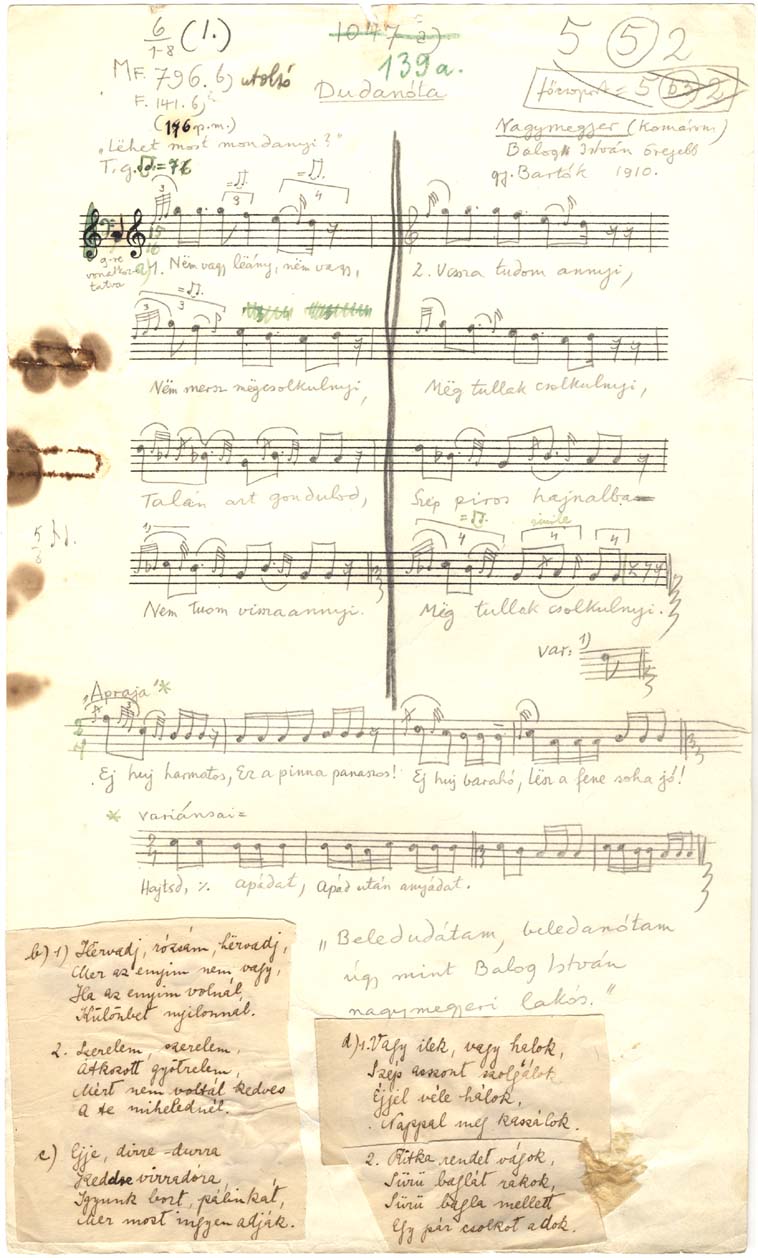 6/1-8 (1.)
1047 a)
139a.
5 (5) 2
MF. 796. b) utolsó
Dudanóta
főcsoport = 5 (b3) 2
F. 141. b)
(196 p.m.)
Nagymegyer (Komárom)
"Lëhet most mondanyi?"
Balogh István öregebb
T. g. ♫ = 76
gy. Bartók 1910.
g-re
vonatkoz-
tatva
a) 1. Nëm vagy lëány, nëm vagy,
2. Vissza tudom annyi,
Nëm mersz mëgcsolkulnyi,
Még tullak csolkulnyi,
Talán azt gondulod,
Szép piros hajnalba
simile
Nem tuom visszaannyi.
Még tullak csolkulnyi.
var: 1)
"Apraja" *
Ej huj harmatos, Ez a pinna panaszos! Ej huj barahó, Lësz a fene soha jó!
* variánsai =
Hajtsd, ·/. apádat, Apád után anyádat.
"Beledudátam, beledanótam
úgy mint Balog István
nagymegyeri lakós."
b) 1) Hërvadj, rózsám, hërvadj,
Mer az enyim nem vagy,
Ha az enyim volnál,
Különbet nyilonnál.
2. Szerelem, szerelem,
Átkozott gyötrelem,
Mért nem voltál kedves
A te mihelednél.
c) Ejje, dirre-durra
Keddse virradóra,
Igyunk bort, pálinkát,
Mer most ingyen adják.
d) 1. Vagy ilek, vagy halok,
Szép asszont szolgálok,
Éjjel véle hálok,
Nappal meg kaszálok.
2. Ritka rendet vágok,
Sürü baglát rakok,
Sürü bagla mellett
Egy pár csolkot adok.